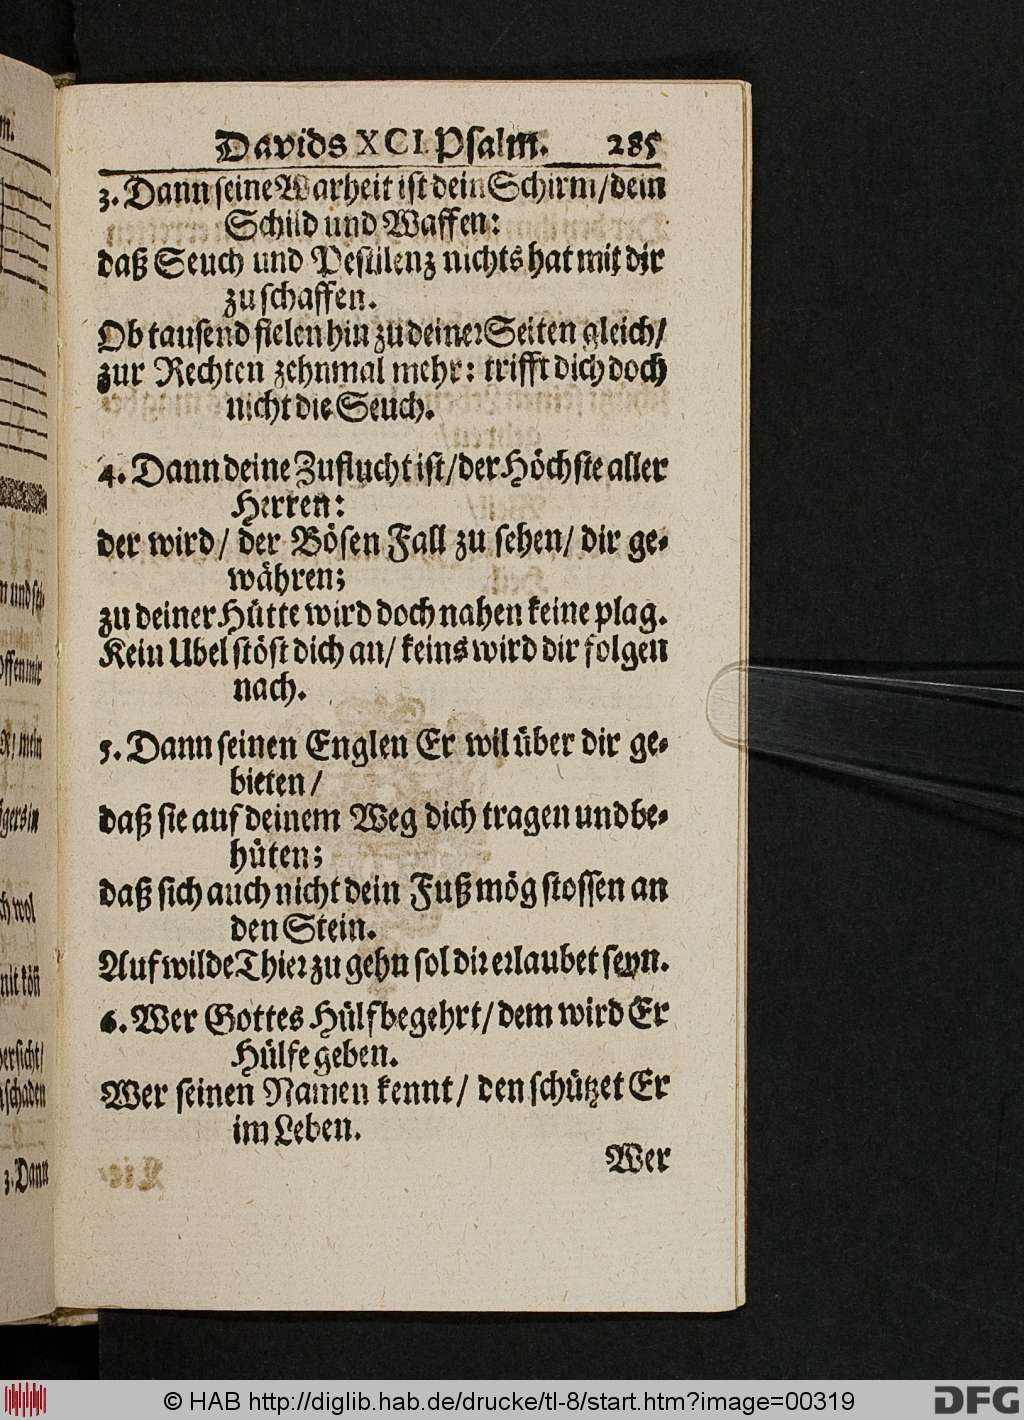 Davids XCI. Psalm. 285
3. Dann seine Warheit ist dein Schirm/dein
Schild und Waffen:
daß Seuch und Pestilenz nichts hat mit dir
zu schaffen.
Ob tausend fielen hin zu deiner Seiten gleich/
zur Rechten zehnmal mehr: trifft dich doch
nicht die Seuch.
4. Dann deine Zuflucht ist/der Höchste aller
Herren:
der wird/ der Bösen Fall zu sehen/ dir ge-
währen;
zu deiner Hütte wird doch nahen keine plag.
Kein Ubel stöst dich an/ keins wird dir folgen
nach.
5. Dann seinen Englen Er wil über dir ge-
bieten/
daß sie auf deinem Weg dich tragen und be-
hüten;
daß sich auch nicht dein Fuß mög stossen an
den Stein.
Auf wilde Thier zu gehn sol dir erlaubet seyn.
6. Wer Gottes Hülf begehrt/ dem wird Er
Hülfe geben.
Wer seinen Namen kennt/ den schützet Er
im Leben.
Wer
m.
n und sei-
offen mir
mein
ch wol
mit kön
schaden
3. Dann
© HAB http://diglib.hab.de/drucke/tl-8/start.htm?image=00319
DFG